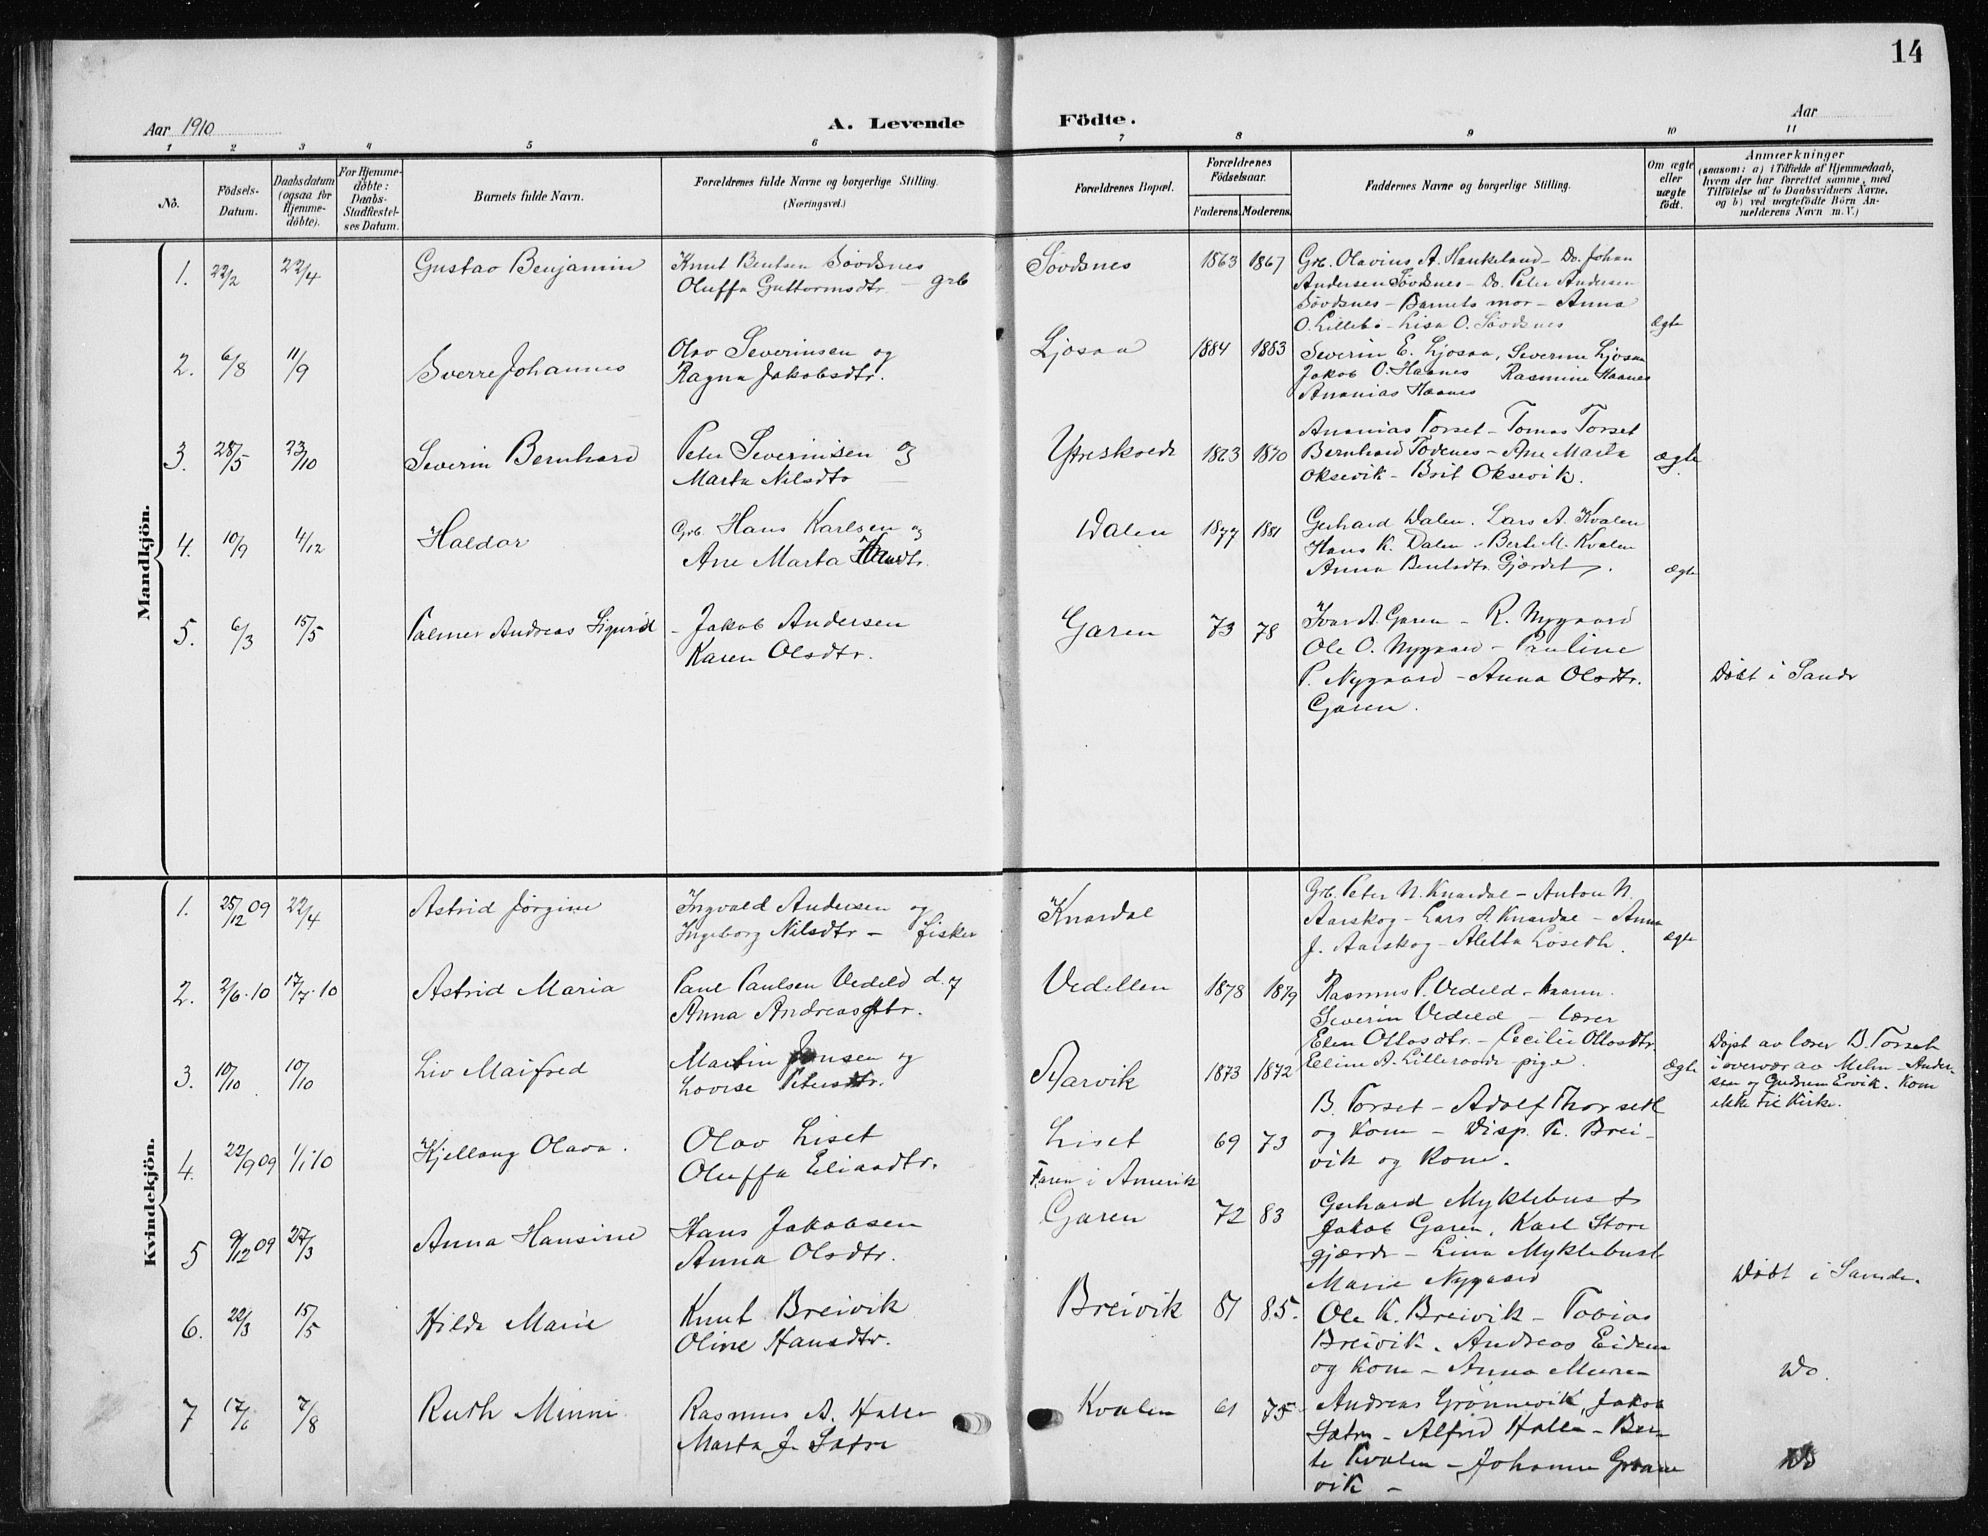 14
Aar 1910
A. Levende
Födte.
Aar
1 2 3 4 5 6 7 8 9 10 11
No.
Födsels-Datum.
Daabsdatum (ogsaa for Hjemme-döbte).
For Hjemme-döbte: Daabs-Stadfæstel-ses Datum.
Barnets fulde Navn.
Forældrenes fulde Navne og borgerlige Stilling.
(Næringsvei.)
Forældrenes Bopæl.
Forældrenes Födselsaar.
Faderens. Moderens.
Faddernes Navne og borgerlige Stilling.
Om ægte eller uægte födt.
Anmærkninger
(saasom: a) i Tilfælde af Hjemmedaab,
hvem der har forrettet samme, med
Tilföielse af to Daabsvidners Navne.
og b) ved uægtefödte Börn An-
melderens Navn m. V.)
Mandkjön.
1. 22/2 22/4 Gustav Benjamin
Knut Bentsen Søvdsnes
Oluffa Guttormsdtr. - grb
Søvdsnes 1863 1867
Grb. Olavius A. Haukeland - Do. Johan
Andersen Søvdsnes - Do. Peter Andersen
Søvdsnes - Barnets mor - Anna
O. Lillebø - Lisa O. Søvdsnes
ægte
2. 6/8 11/9 Sverre Johannes
Olav Severinsen og
Ragna Jakobsdtr.
Ljosaa 1884 1883
Severin E. Ljosaa, Severine Ljosaa
Jakob O. Haanes Rasmine Haanes
Ananias Haanes
3. 28/5 23/10 Severin Bernhard
Peter Severinsen og
Marta Nilsdtr
Ytreskorde 1863 1870
Ananias Torset - Tomas Torset
Bernhard Todenes - Ane Marta
Oksevik - Brit Oksevik.
ægte
4. 10/9 4/12 Haldor
Grb. Hans Karlsen og
Ane Marta
Dalen 1877 1881
Gerhard Dalen. Lars A. Kvalen
Hans K. Dalen - Berte M. Kvalen
Anna Bentsdtr. Gjerdet
ægte
5. 6/3 15/5 Palmer Andreas Sigurd
- Jakob Andersen
Karen Olsdtr.
Garen 73 78
Ivar A. Garen - R. Nygaard
Ole O. Nygaard - Pauline
P. Nygaard - Anna Olsdtr.
Garen.
Døbt i Sande
Kvindekjön.
1. 25/12 09 22/4 Astrid Jørgine
Ingvald Andersen og
Ingeborg Nilsdtr - fisker
Knardal
Grb. Peter N. Knardal - Anton N.
Aarskog - Lars A. Knardal - Anna
J. Aarskog - Aletta Løseth.
ægte
2. 2/6. 10 17/7. 10 Astrid Maria
Paul Paulsen Vedeld d.y
Anna Andreasdtr.
Vedellen 1878 1879
Rasmus P. Vedeld -
Severin Vedeld - lærer
Elen Ottosdtr. - Cecilie Ottosdtr.
Eline A. Lillerovde - pige.
3. 10/10 10/10 Liv Maifred
Martin Jonsen og
Lovise Petersdtr.
Aarvik 1873 1872
ægte
Døpt av lærer B. Torset
i overvær av Melin Ander-
sen og Gudrun Ervik. Kom
ikke til Kirke.
4. 22/9 09 1/1 10 Kjellaug Olava.
Olav Liset
Oluffa Eliasdtr.
Liset 69 73
Faren i Amerik
B. Torset - Adolf Thorseth
og kone - Disp. K. Brei-
vik og kone.
5 9/12 09 27/3 Anna Hansine
Hans Jakobsen
Anna Olsdtr.
Garen 72 83
Gerhard Myklebust
Jakob Garen, Karl Store
gjærde - Lina Myklebust
Marie Nygaard
Døbt i Sande.
6. 22/3 15/5 Hilda Marie
Knut Breivik
Oline Hansdtr.
Breivik 81 85.
Ole K. Breivik - Tobias
Breivik. Andreas Eidem
og kone - Anna Muren
Do.
7 17/6 7/8 Ruth Minni
Rasmus A. Halle
Marta J. Sætre
Kvalen 61 75
Andreas Grønnevik, Jakob
Sætre - Alfrid Halle - Ber-
te Kvalen - Johanne Grønne
vik -
Do